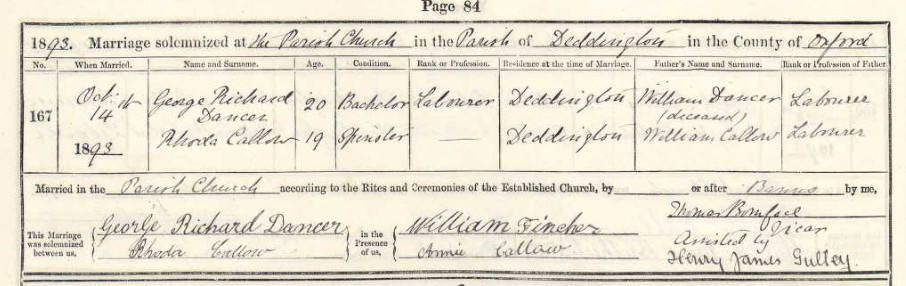 Page 84
1893. Marriage solemnized at The Parish Church in the Parish of Deddington in the County of Oxford
No. When Married. Name and Surname. Age. Condition. Rank or Profession. Residence at the time of Marriage. Father's Name and Surname. Rank or Profession of Father
167 Oct: 14th 1893 George Richard Dancer 20 Bachelor Labourer Deddington William Dancer (deceased) Labourer
Rhoda Callow 19 Spinster — Deddington William Callow Labourer
Married in the Parish Church according to the Rites and Ceremonies of the Established Church, by — or after Banns by me,
This Marriage was solemnized between us, George Richard Dancer in the Presence of us, William Fincher Thomas Boniface
Rhoda Callow Annie Callow Vicar
Assisted by
Henry James Gulley.